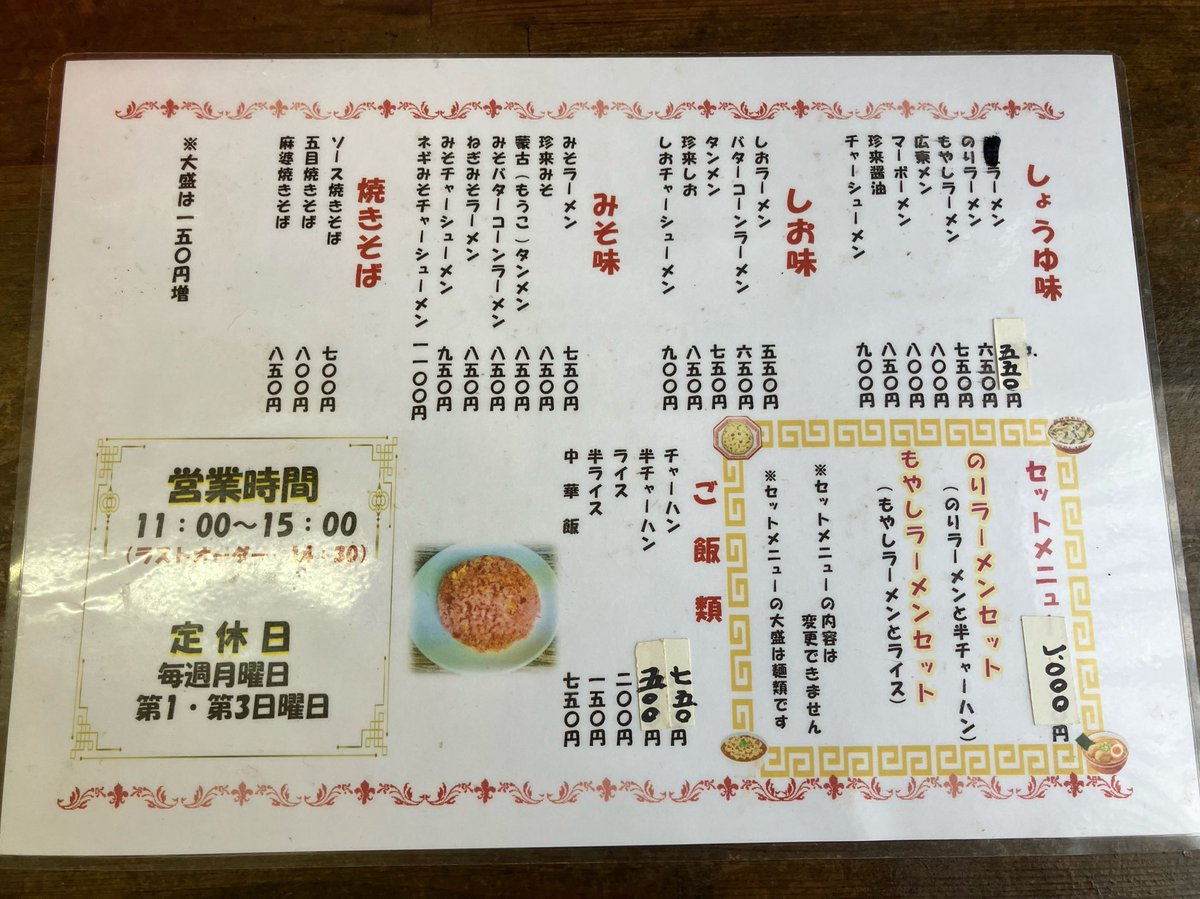 しょうゆ味
ラーメン 五五〇円
のりラーメン 六五〇円
もやしラーメン 七五〇円
広東メン 八〇〇円
マーボーメン 八〇〇円
珍来醤油 八五〇円
チャーシューメン 九〇〇円
しお味
しおラーメン 五五〇円
バターコーンラーメン 六五〇円
タンメン 七五〇円
珍来しお 八五〇円
しおチャーシューメン 九〇〇円
みそ味
みそラーメン 七五〇円
珍来みそ 八五〇円
蒙古（もうこ）タンメン 八五〇円
みそバターコーンラーメン 八五〇円
ねぎみそラーメン 八五〇円
みそチャーシューメン 九五〇円
ネギみそチャーシューメン 一一〇〇円
焼きそば
ソース焼きそば 七〇〇円
五目焼きそば 八〇〇円
麻婆焼きそば 八五〇円
※大盛は一五〇円増
セットメニュー 1,000円
のりラーメンセット
（のりラーメンと半チャーハン）
もやしラーメンセット
（もやしラーメンとライス）
※セットメニューの内容は
変更できません
※セットメニューの大盛は麺類です
ご飯類
チャーハン 七五〇円
半チャーハン 五〇〇円
ライス 二〇〇円
半ライス 一五〇円
中華飯 七五〇円
営業時間
11：00～15：00
（ラストオーダー 14：30）
定休日
毎週月曜日
第1・第3日曜日